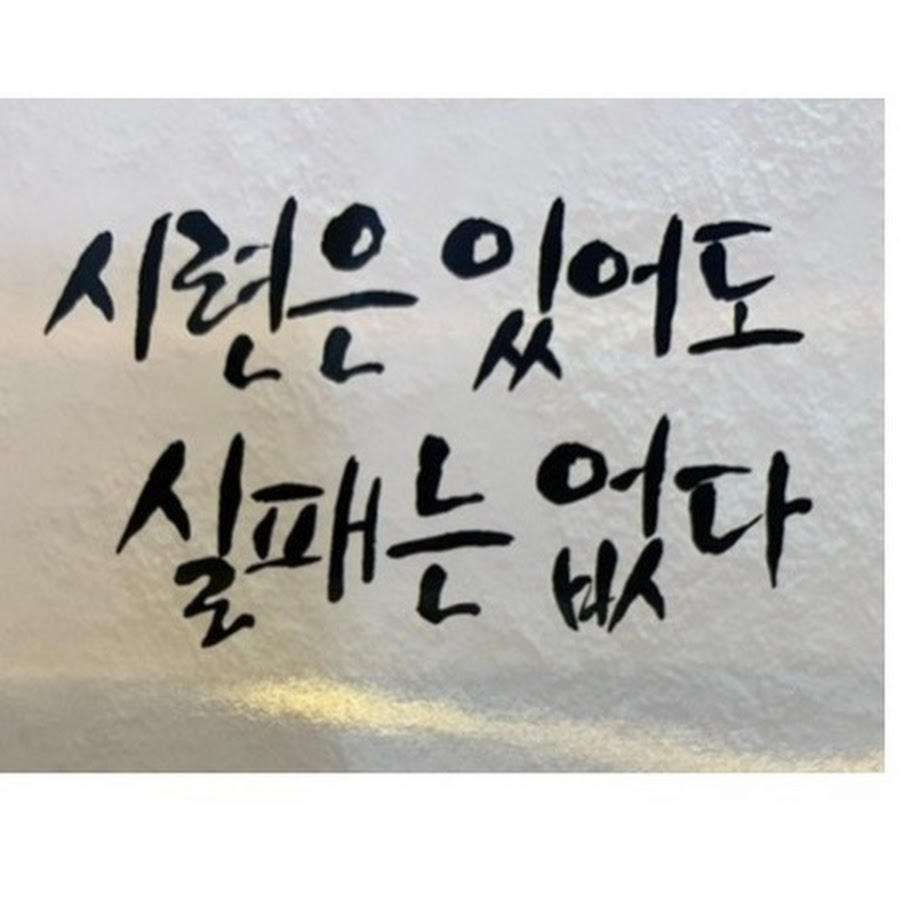 시련은 있어도
실패는 없다